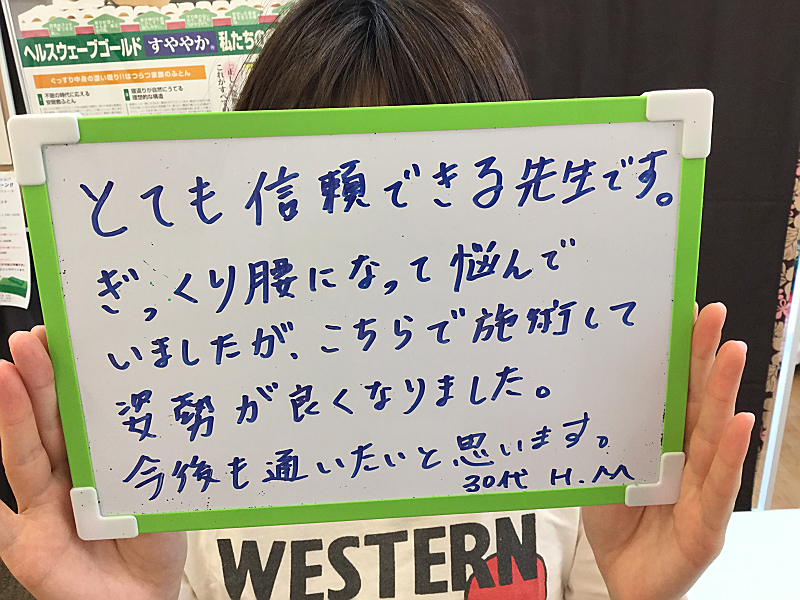 ヘルスウェーブゴールド すややか 私たちの
ぐっすり中身の濃い眠り!!はつらつ家族のふとん
不眠の時代に応える
安眠敷ふとん
寝返りが自然にうてる
理想的な構造
とても信頼できる先生です。
ぎっくり腰になって悩んで
いましたが、こちらで施術して
姿勢が良くなりました。
今後も通いたいと思います。
30代 H.M
WESTERN